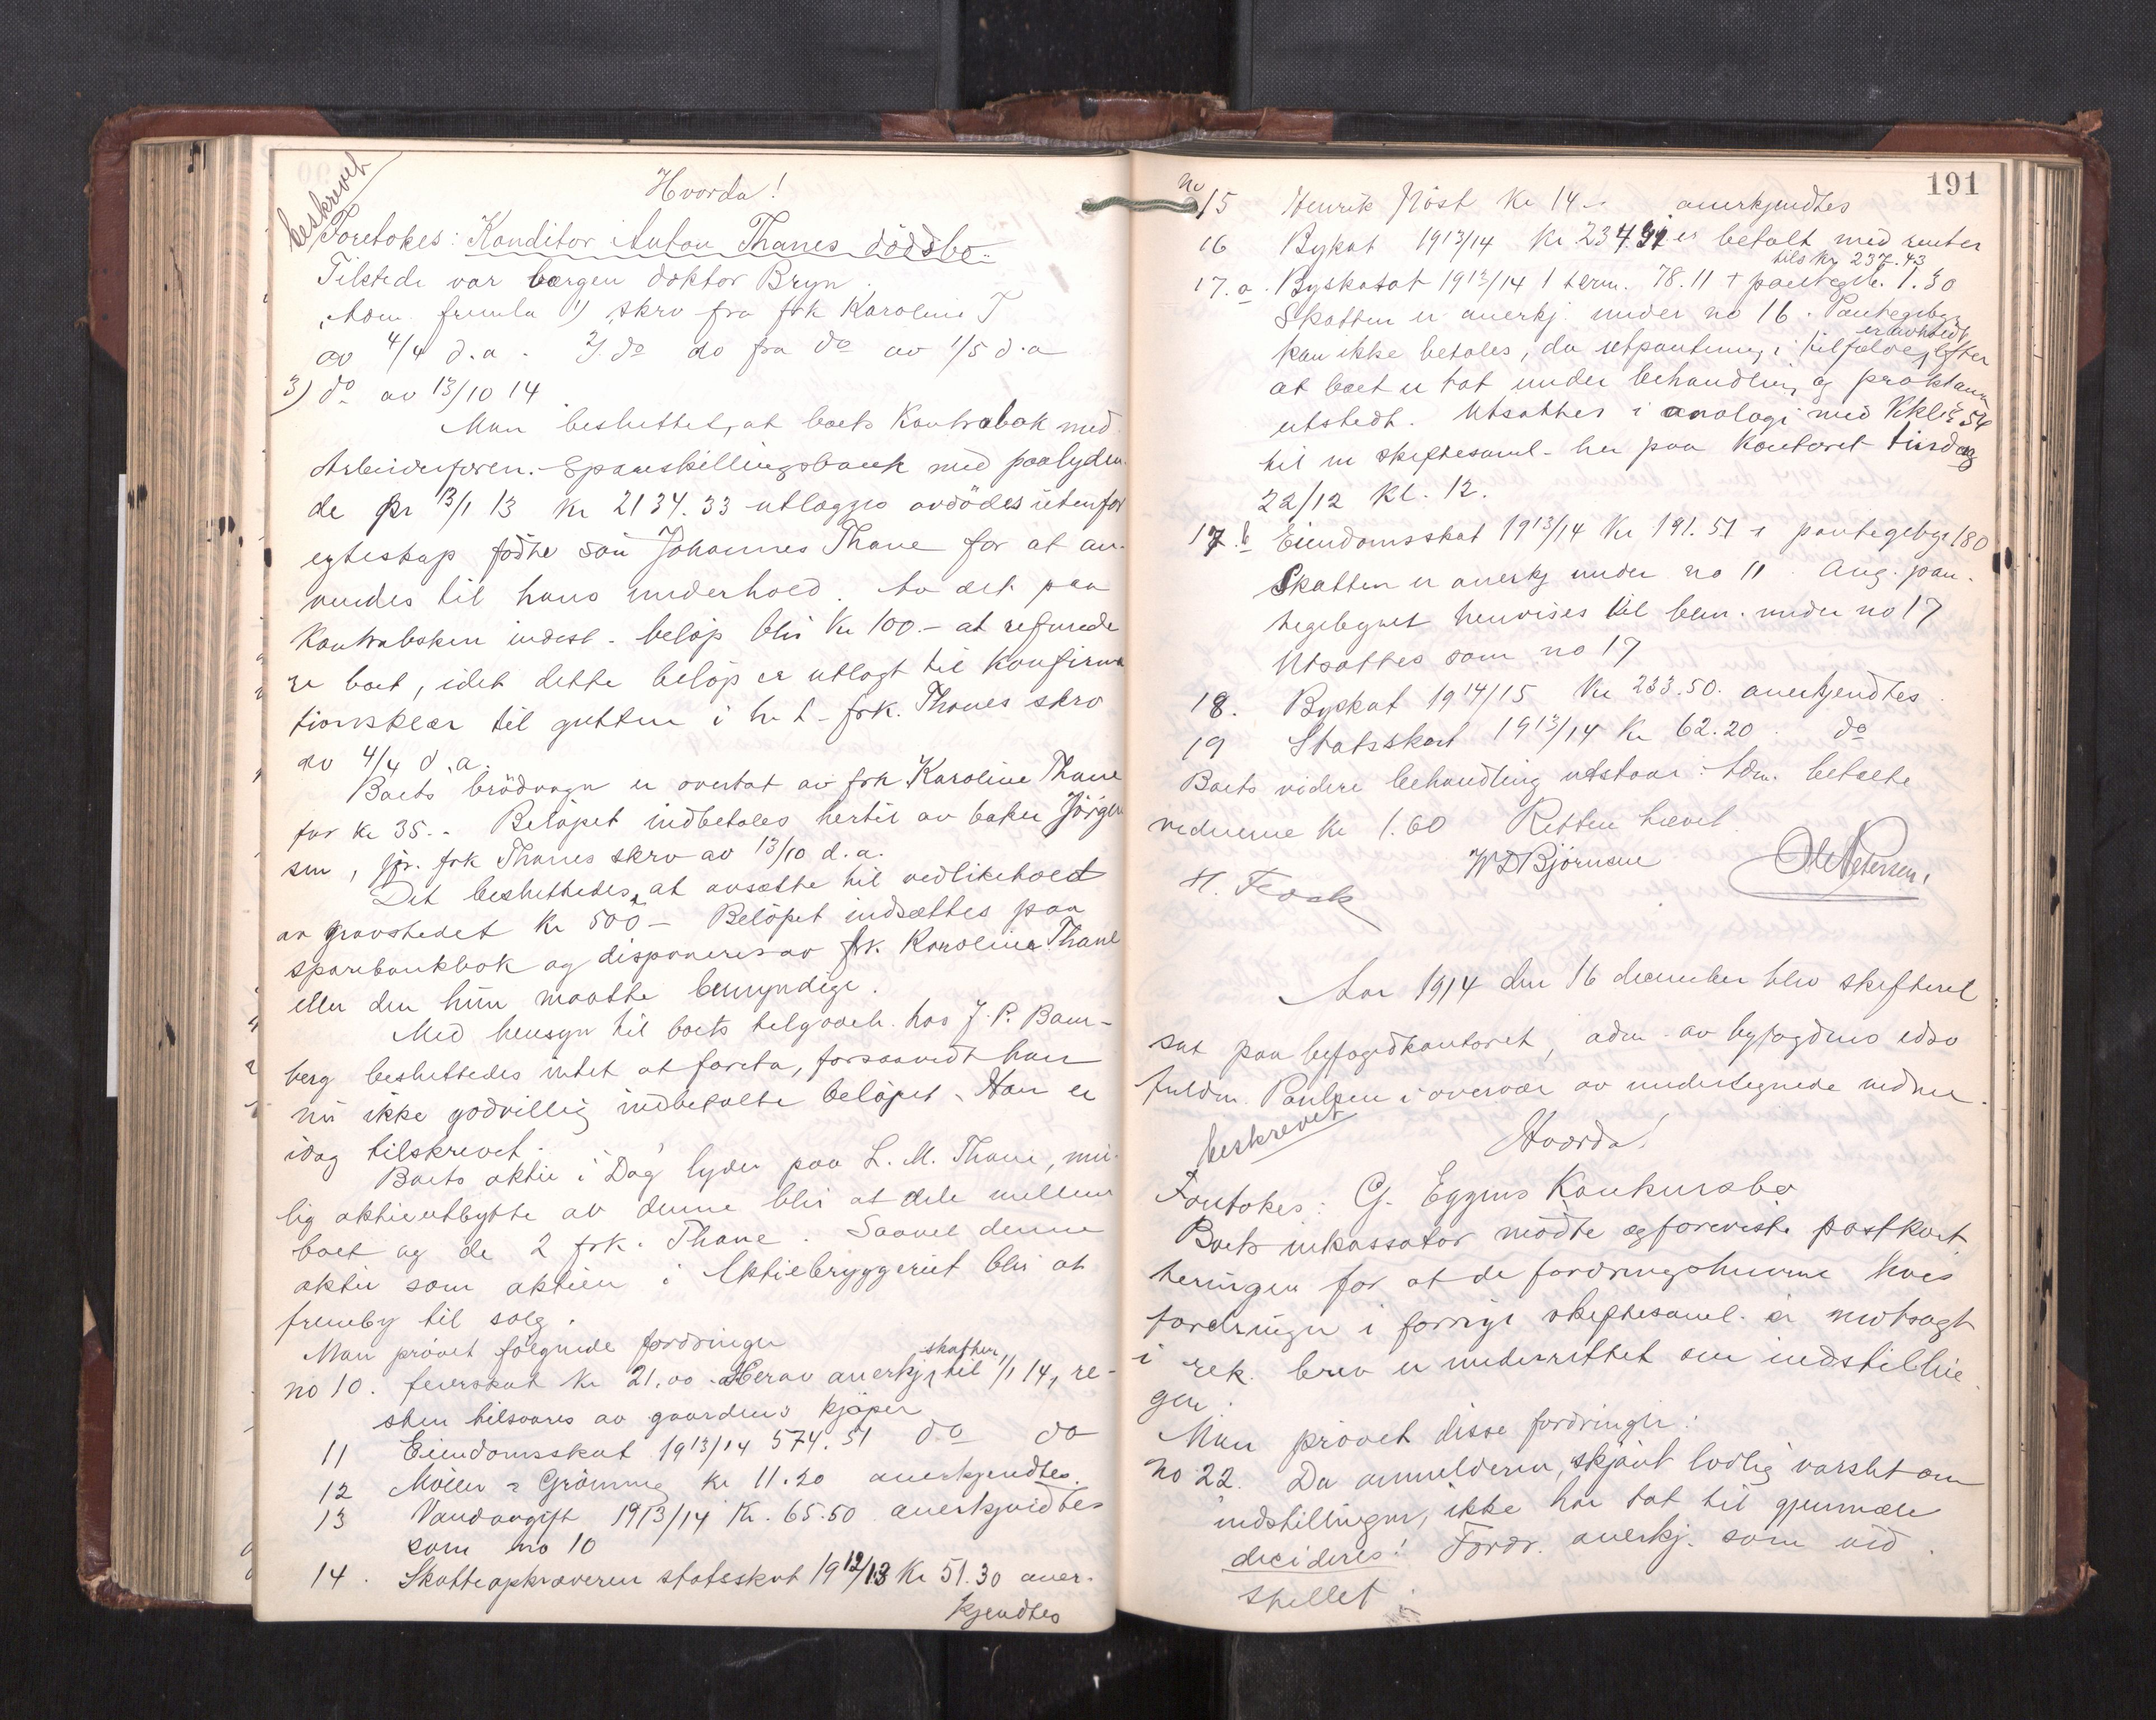 beskrevet
Hvorda!
Foretokes: Konditor Anton Thanes dödsbo.
Tilstede var værgen doktor Bryn
Adm. fremla 1) skrv fra frk Karoline T
av 4/4 d.a. 2) do do fra do av 1/5 d.a
3) do av 13/10 14
Man besluttet, at boets Kontrabok med
Arbeiderforen. Spareskillingsbank med paalyden-
de pr 13/1 13 kr 2134.33 utlægges avdödes utenfor
egteskap födte sön Johannes Thane for at an-
vendes til hans underhold. Av det paa
Kontraboken indest. belöp blir kr 100.- at refunde
re boet, idet dette belöp er utlagt til konfirma
tionsklær til gutten i h t. frk. Thanes skrv
av 4/4 d.a.
Boets brödvogn er overtat av frk Karoline Thane
for kr 35.- Belöpet indbetales hertil av baker Jörgen
sen, jfr. frk Thanes skrv av 13/10 d.a.
Det besluttedes, at avsætte til vedlikehold
av gravstedet kr 500 - Belöpet indsættes paa
sparebankbok og disponeres av frk. Karoline Thane
eller den hun maatte bemyndige.
Med hensyn til boets tilgodeh. hos J. P. Bam-
berg besluttedes intet at foreta, forsaavidt han
nu ikke godvillig indbetalte belöpet. Han er
idag tilskrevet.
Boets aktie i "Dag" lyder paa L. M. Thane, mu-
lig aktieutbytte av denne blir at dele mellem
boet og de 2 frk. Thane. Saavel denne
aktie som aktien i Aktiebryggeriet blir at
fremby til salg.
Man prövet fölgende fordringer
no 10. feierskat kr 21.00. Herav anerkj. skatten til 1/1 14, re-
sten tilsvares av gaardens kjöper
11 Eiendomsskat 1913/14 574.51 do do
12 Möller & Grönning kr 11.20 anerkjendtes.
13 Vandavgift 1913/14 Kr. 65.50 anerkjendtes
som no 10
14. Skatteopkræveren statsskat 1912/13 Kr 51.30 aner-
kjendtes
191
no 15 Henrik Röst Kr 14.- anerkjendtes
16 Byskat 1913/14 Kr 234.31 er betalt med renter
tils kr 237.43
17.a. Byskatat 1913/14 1 term. 78.11 + pantegeb. 1.30
Skatten er anerkj. under no 16. Pantegebyr
kan ikke betales, da utpantning i tilfælde er avholdt efter
at boet er tat under behandling og proklama
utstedt. Utsattes i analogi med Kkl. § 54
til ny skiftesaml. her paa Kontoret tirsdag
22/12 kl. 12.
17.b Eiendomsskat 1913/14 Kr 191.51 + pantegebyr 1.80
Skatten er anerkj under no 11. Ang. pan-
tegebyret henvises til bem. under no 17
Utsattes som no 17
18. Byskat 1914/15 Kr 233.50. anerkjendtes
19 Statsskat 1913/14 Kr 62.20. do
Boets videre behandling utstaar. Adm. betalte
vidnerne kr 1.60 Retten hævet
W D Björnsen Petersen
H. Fcock
Aar 1914 den 16 december blev skifteret
sat paa byfogedkontoret, adm. av byfogdens edsv
fuldm. Paulsen i overvær av undertegnede vidner.
beskrevet
Hvorda!
Foretokes: G. Eggens Konkursbo
Boets inkassator mödte og foreviste postkvit-
teringen for at de fordringshavere hvis
fordringer i forrige skiftesaml. er motsagt
i rek. brev er underrettet om indstillin
gen.
Man prövet disse fordringer:
no 22. Da anmelderen, skjönt lovlig varslet om
indstillingen, ikke har tat til gjenmæle
decideres: Fordr. anerkj. som ind
stillet.